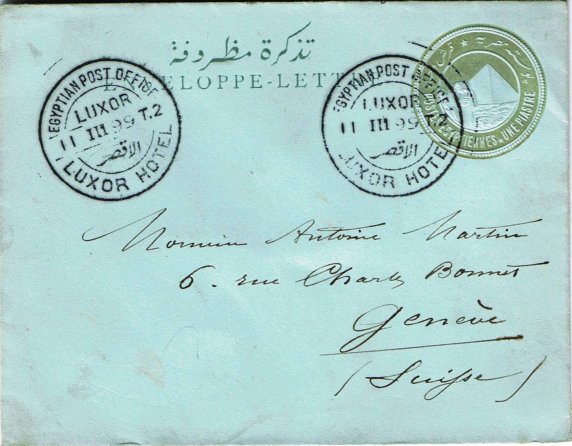 تذكرة مظروفة
ENVELOPPE-LETTRE
EGYPTIAN POST OFFICE
LUXOR
11 III 99 T.2
الاقصر
LUXOR HOTEL
EGYPTIAN POST OFFICE
LUXOR
11 III 99 T.2
الاقصر
LUXOR HOTEL
POSTES EGYPTIENNES ★ UNE PIASTRE
Antoine Martin
6. rue Charles Bonnet
Genève
(Suisse)